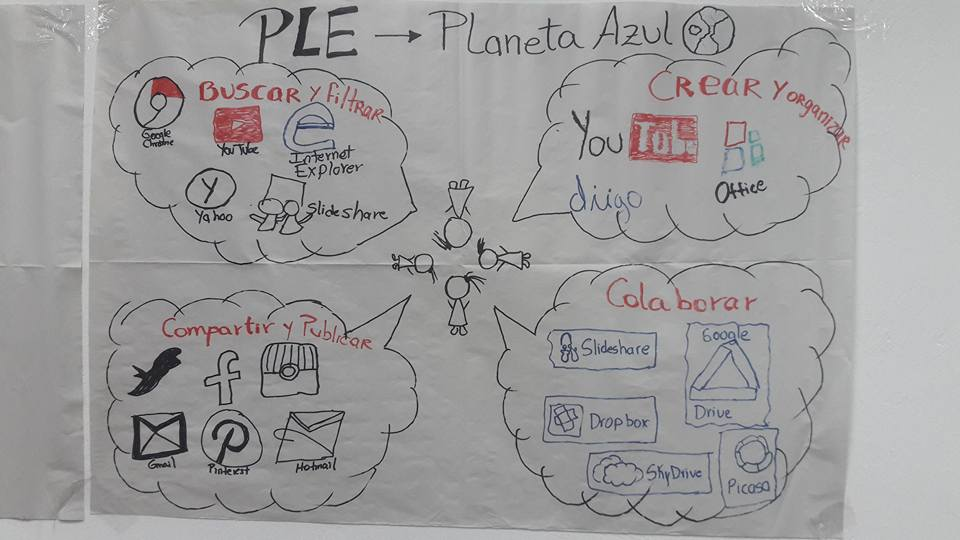 PLE → Planeta Azul
Buscar y filtrar
Google Chrome
YouTube
Internet Explorer
Y
Yahoo
Slideshare
Crear y organizar
YouTube
diigo
Office
Compartir y Publicar
f
Gmail
P
Pinterest
Hotmail
Colaborar
Slideshare
Google Drive
Dropbox
SkyDrive
Picasa